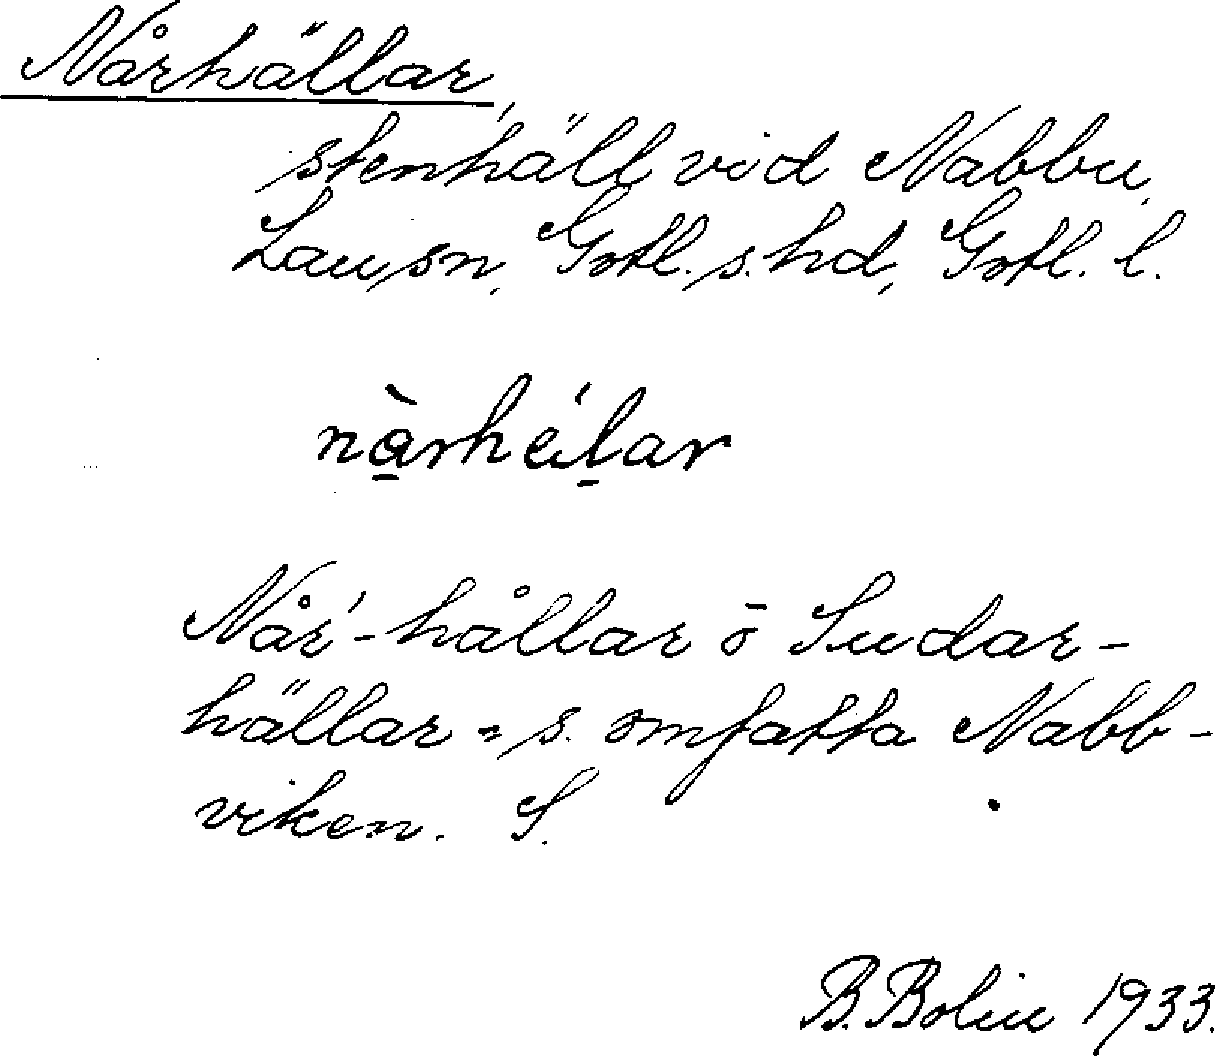 Nårhällar,
stenhäll vid Nabbu,
Lau sn, Gotl. s. hd, Gotl. l.
nàrhélar
Når-hållar ō Sudar-
hällar s. omfatta Nabb-
viken. S.
B. Bolin 1933.